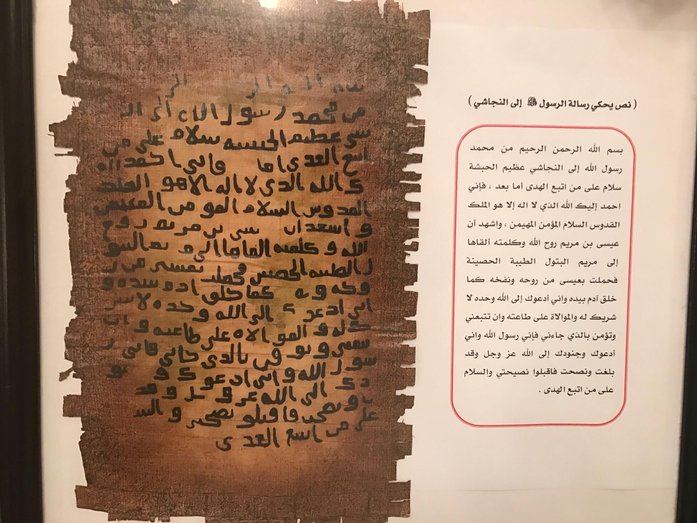 ( نص يحكي رسالة الرسول ﷺ إلى النجاشي )
بسم الله الرحمن الرحيم من محمد
رسول الله إلى النجاشي عظيم الحبشة
سلام على من اتبع الهدى اما بعد ، فإني
احمد إليك الله الذي لا اله إلا هو الملك
القدوس السلام المؤمن المهيمن ، واشهد أن
عيسى بن مريم روح الله وكلمته ألقاها
إلى مريم البتول الطيبة الحصينة
فحملت بعيسى من روحه ونفخه كما
خلق آدم بيده واني أدعوك إلى الله وحده لا
شريك له والموالاة على طاعته وان تتبعني
وتؤمن بالذي جاءني فإني رسول الله واني
أدعوك وجنودك إلى الله عز وجل وقد
بلغت ونصحت فاقبلوا نصيحتي والسلام
على من اتبع الهدى .
من محمد رسول الله الى
شي عظيم الحبشه سلام على من
اتبع الهدى اما فاني احمد
ك الله الذي لا اله الا هو الملك
القدوس السلام المومن المهيمن
و اشهد ان بن مريم روح
الله و كلمته القاها الى البتو
ل الطيبه الحصينه فحملت بعيسى من ر
كما خلق ادم بيده و
اني ادعوك الى الله وحده لا شر
ك له و الموالاه على طاعته و ان
بالذي فاني ر
سول الله و اني ادعوك
دك الى الله عز و جل و قد
و نصحت فاقبلو و السلا
على من اتبع الهدى